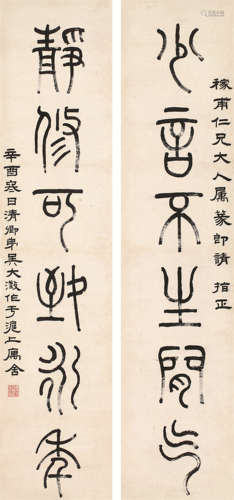 稼甫仁兄大人属篆即請 指正
少言不生閒气
靜修可致永年
辛酉日清卿弟吳大澂作于滬上寓舍